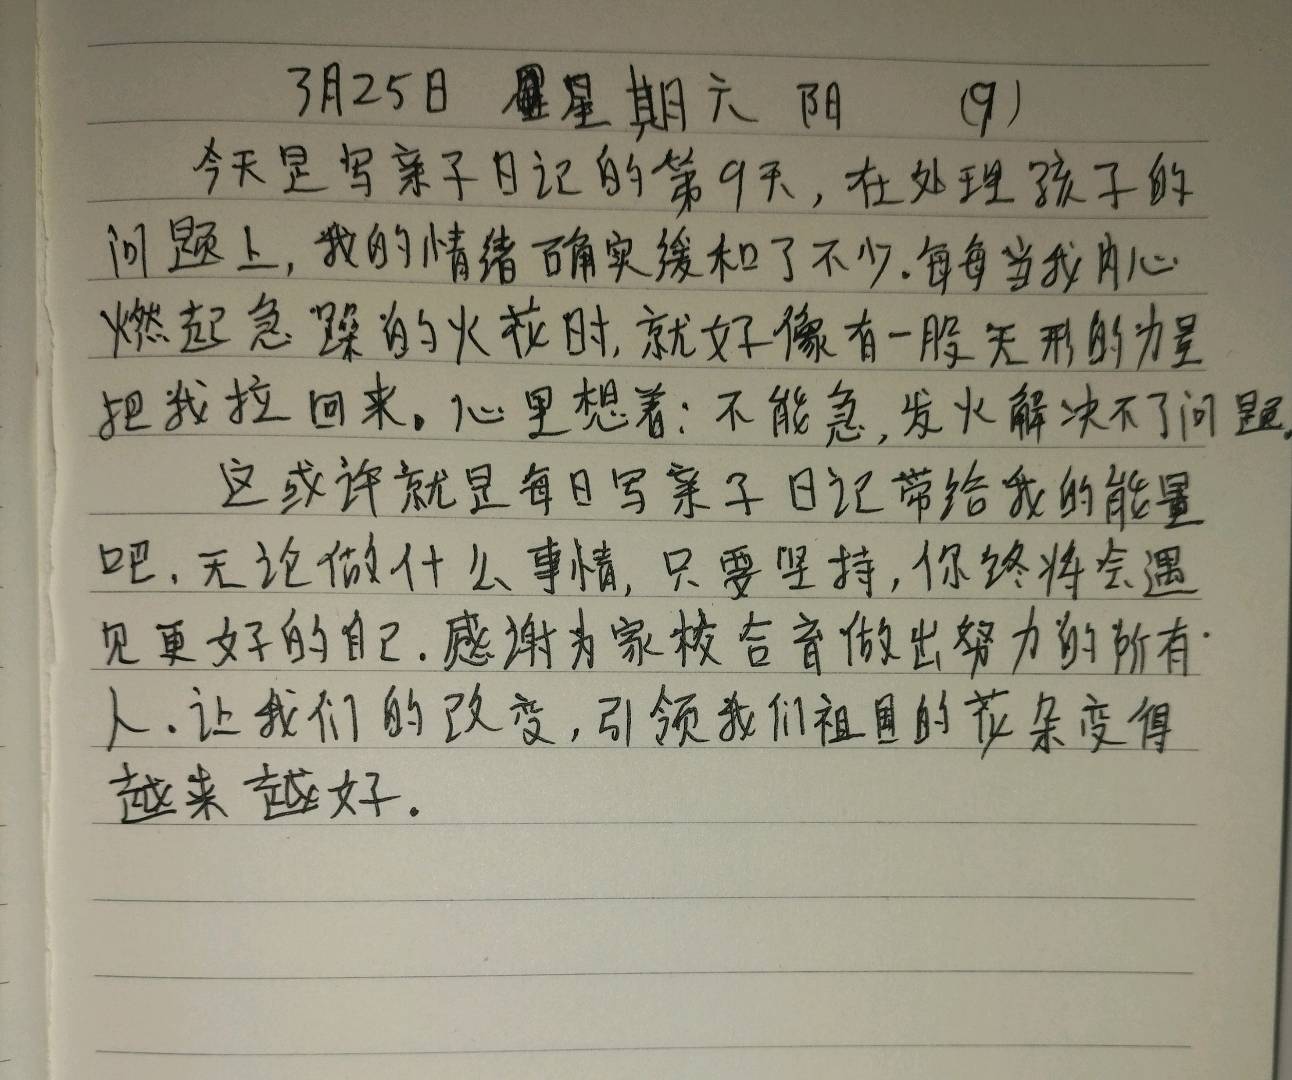 3月25日 星期六 阳 (9)
今天是写亲子日记的第9天,在处理孩子的
问题上,我的情绪确实缓和了不少.每每当我内心
燃起急躁的火花时,就好像有一股无形的力量
把我拉回来。心里想着:不能急,发火解决不了问题。
这或许就是每日写亲子日记带给我的能量
吧.无论做什么事情,只要坚持,你终将会遇
见更好的自己.感谢为家校合育做出努力的所有
人.让我们的改变,引领我们祖国的花朵变得
越来越好.